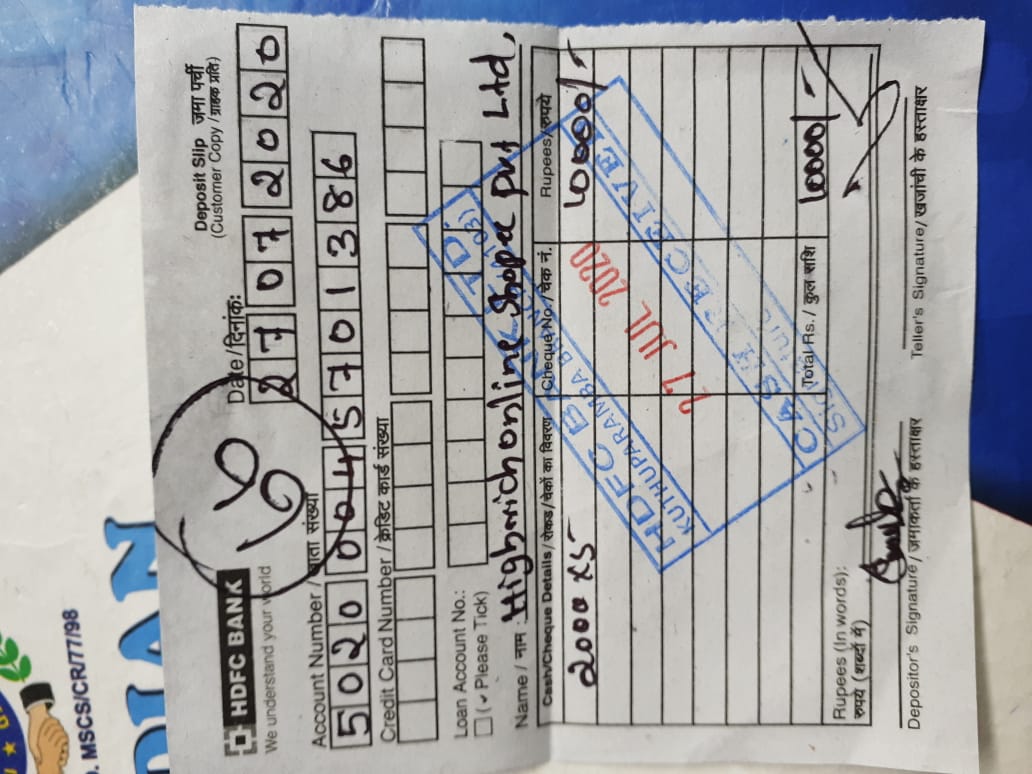 HDFC BANK
We understand your world
Deposit Slip जमा पर्ची
(Customer Copy / ग्राहक प्रति)
Date / दिनांक:
27 07 2020
Account Number / खाता संख्या
50200045701386
Credit Card Number / क्रेडिट कार्ड संख्या
Loan Account No.:
(✓ Please Tick)
Name / नाम : Highrich online Shope pvt Ltd,
Cash/Cheque Details / रोकड / चेकों का विवरण Cheque No. / चेक नं. Rupees / रुपये
2000 x 5 10000/-
HDFC BANK LTD.
KUTHUPARAMBA BRANCH
27 JUL 2020
CASH RECEIVED
Signature
Total Rs. / कुल राशि 10000/-
Rupees (In words):
रुपये (शब्दों में)
Depositor's Signature / जमाकर्ता के हस्ताक्षर Teller's Signature / खजांची के हस्ताक्षर
MSCS/CR/77/98